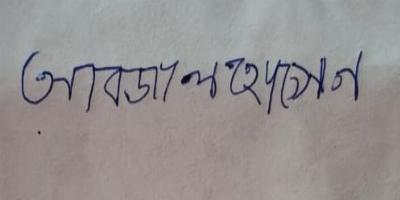 আবজাল হোসেন